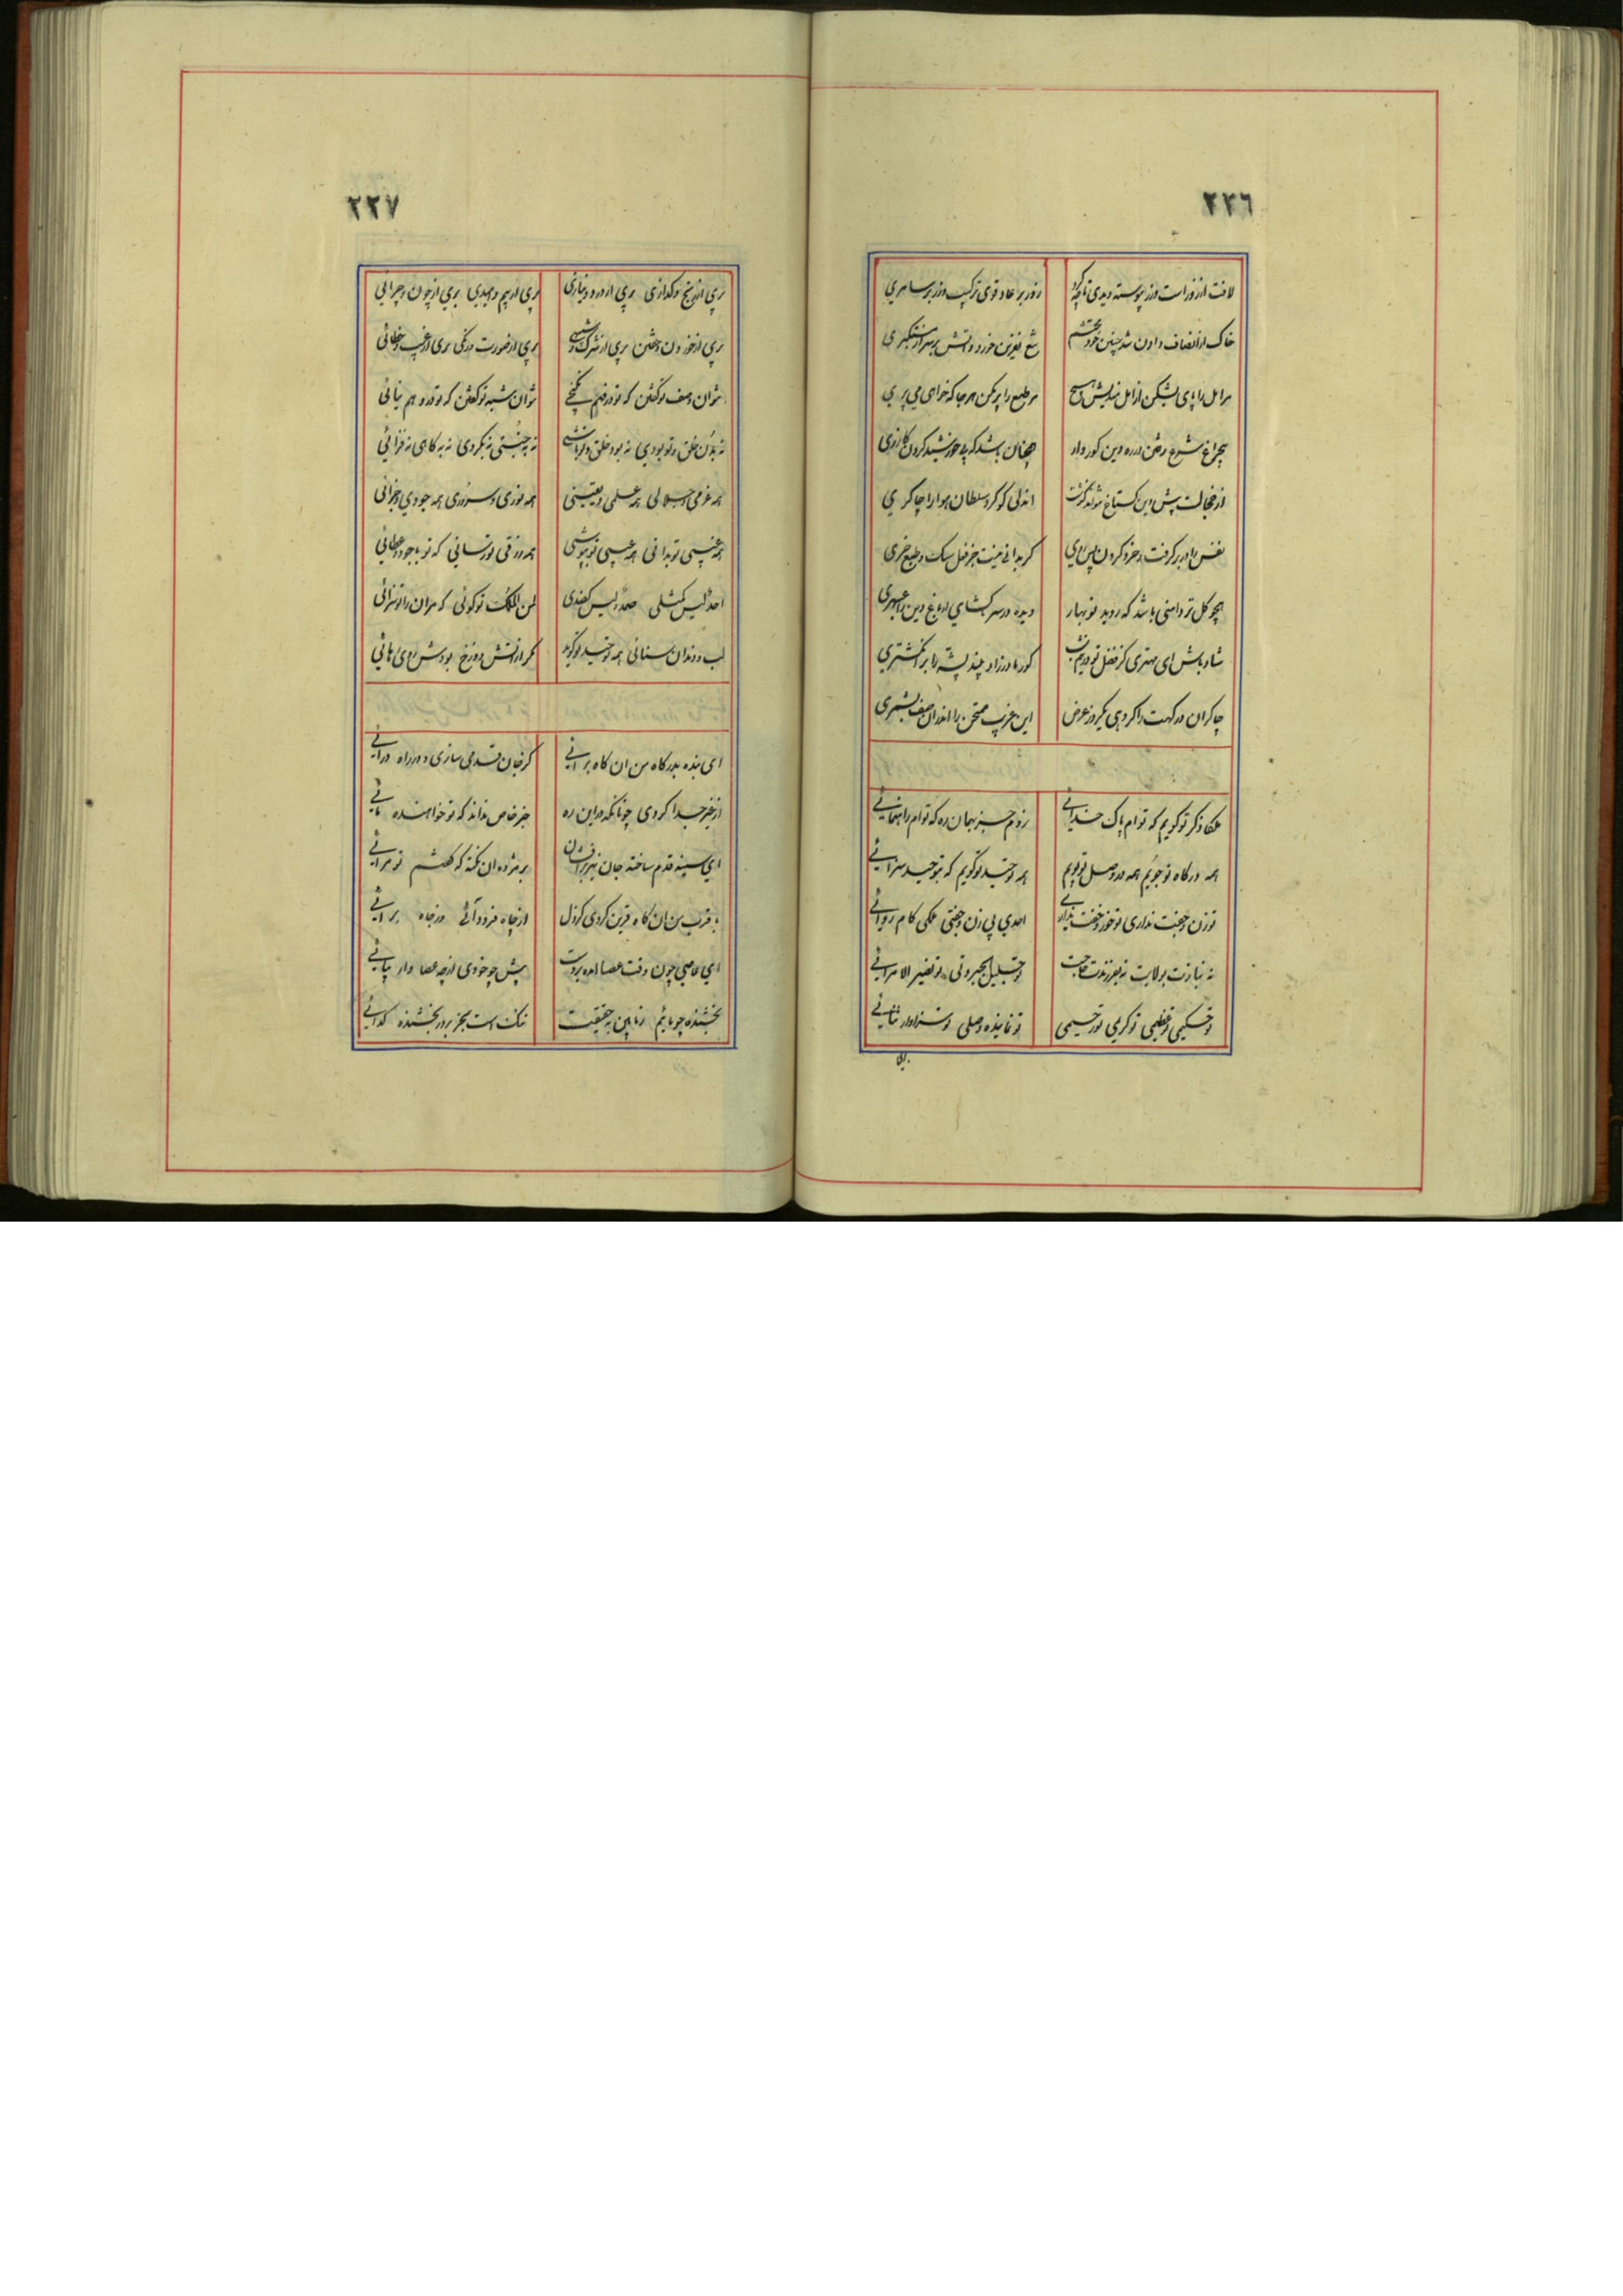 ٢٢٦
لافت از زور است و زر پیوسته دیدی تا چه کرد زور بر عاد قوی ترکیب و زر بر سامری
خاک از انصاف دادن شد چنین خود محتشم باد نفرین خورد و آتش بر سر از مستکبری
مر امل را پای بشکن از امل مندیش هیچ مر طمع را پر بکن هر جا که خواهی می پری
بی چراغ شرع رفتن در ره دین کوروار همچنان باشد که بی خورشید کردن کازری
از خجالت پیش دین گستاخ نتواند گذشت اندلی کو کرد سلطان هوا را چاکری
نفس را در بر گرفت و خرد کردن پس روی گر بدانی نیست جز فعل سگ و طبع خری
همچو گل تر دامنی باشد که روید نوبهار دیده در سر برگشای از باغ دین را عبهری
شاد باش ای مهتری کز فضل تو کور مادرزاد بیند پشه را بر انگشتری
چاکران درگهت را گر دهی یکروز عرض این غریب ممتحن را اندران صف بشمری
ملکا ذکر تو گویم که تو ام پاک خدائی نروم جز بهمان ره که تو ام راهنمائی
همه درگاه تو جویم همه در وصل تو پویم همه توحید تو گویم که بتوحید سزائی
تو زن و جفت نداری تو خور و خفت نداری احدی بی زن و جفتی ملکی کام روائی
نه نیازت بولایت نه بفرزندت حاجت تو جلیل الجبروتی تو نصیر الامرائی
تو حکیمی تو عظیمی تو کریمی تو رحیمی تو نماینده وصلی تو سزاوار ثنائی
بری
٢٢٧
بری از رنج و گدازی بری از درد و نیازی بری از بیم و امیدی بری از چون و چرائی
بری از خوردن و خفتن بری از شرک و شبیهی بری از صورت و رنگی بری از عیب و خطائی
نتوان وصف تو گفتن که تو در فهم نگنجی نتوان شبه تو گفتن که تو در وهم نیائی
نه بدن خلق و تو بودی نه بود خلق و تو باشی نه بجنبی نه بگردی نه بکاهی نه فزائی
همه عزمی و جلالی همه علمی و یقینی همه نوری و سروری همه جودی و جزائی
همه غیبی تو بدانی همه عیبی تو بپوشی همه رزقی تو رسانی که تو با جود و عطائی
احد لیس کمثلی صمد لیس کفندی لمن الملک تو گوئی که مر آن را تو سزائی
لب و دندان سنائی همه توحید تو گوید مگر از آتش دوزخ بودش روی رهائی
ای بنده بدرگاه من ان گاه برائی کز جان قدمی سازی و در راه درائی
از غیر جدا گردی چونانکه در این ره جز خاص نداند که تو خواهنده مائی
ای سینه قدم ساخته جان نیز برافشان بر مژده ان نکته که گفتم تو مرائی
با قرب من ان گاه قرین گردی کز دل از جاه فرود آئی در جاه برائی
ای عاصی چون وقت عصا امده بر دست پیش چو خودی از چه عصا وار بپائی
بخشنده چو مائیم ز ما بین به حقیقت ننگ است بجز بر در بخشنده گدائی